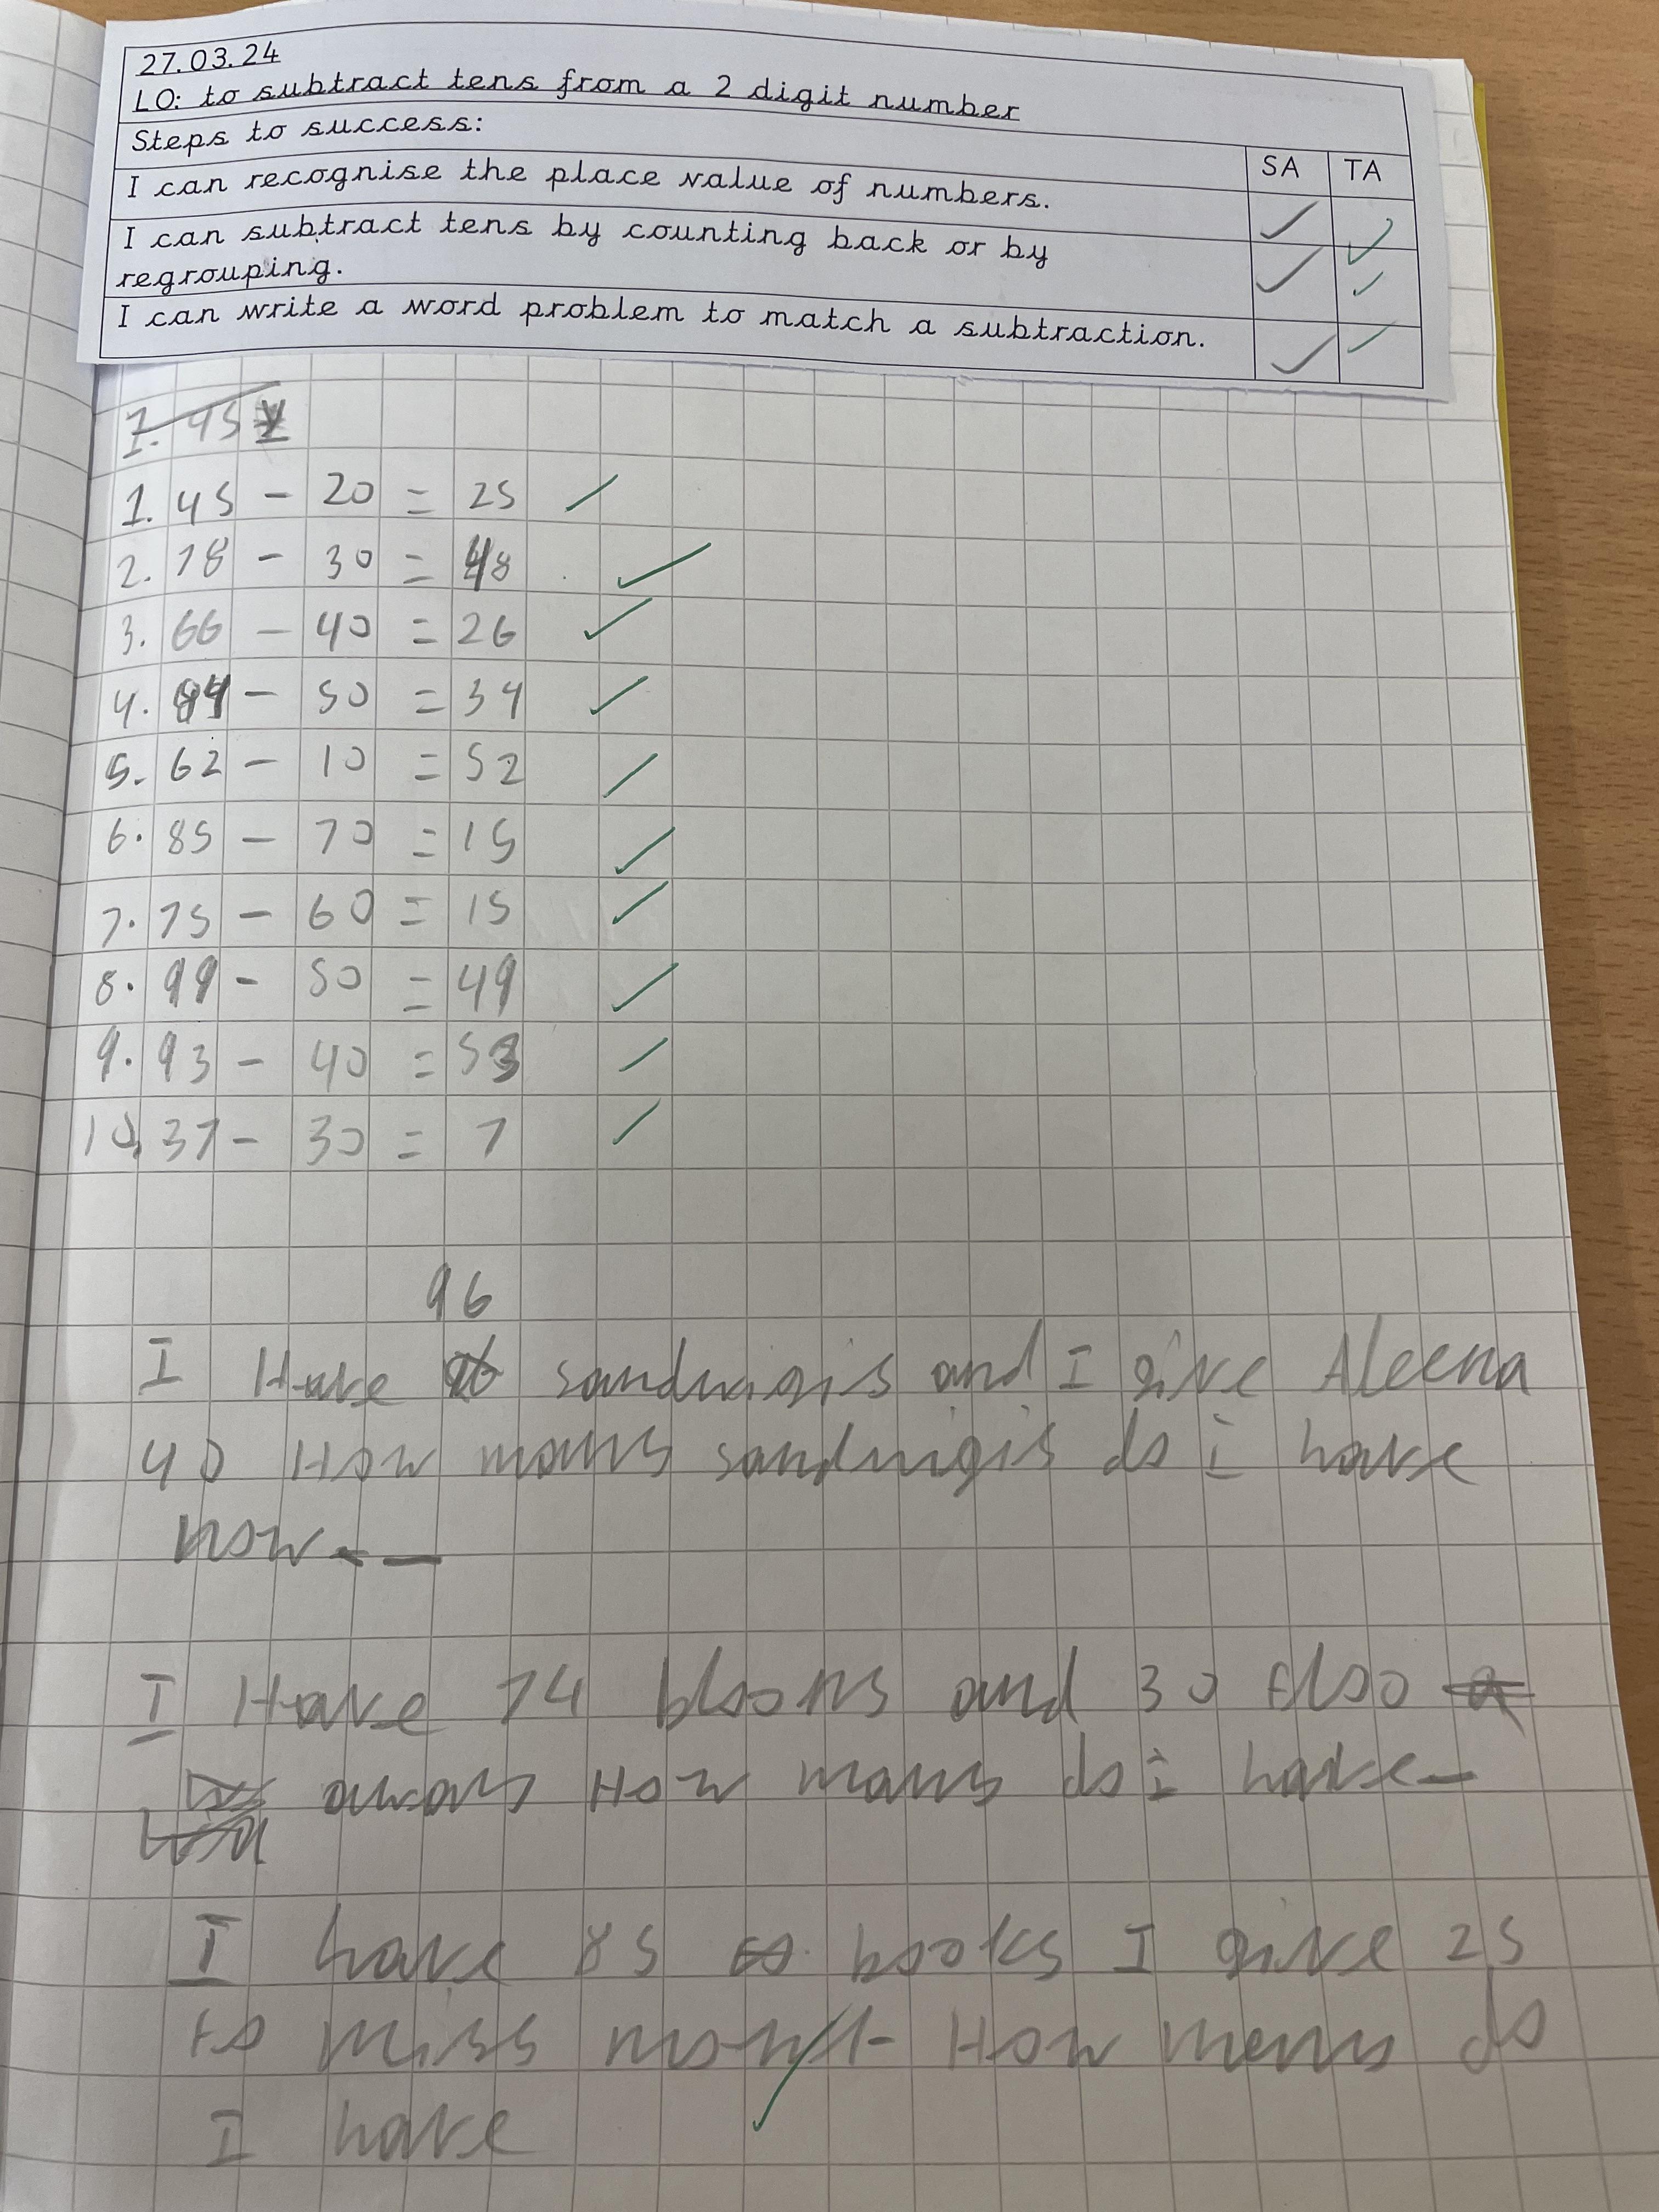 27.03.24
LO: to subtract tens from a 2 digit number
Steps to success:
SA TA
I can recognise the place value of numbers.
I can subtract tens by counting back or by
regrouping.
I can write a word problem to match a subtraction.
1. 45
1. 45 - 20 = 25
2. 78 - 30 = 48
3. 66 - 40 = 26
4. 84 - 50 = 34
5. 62 - 10 = 52
6. 85 - 70 = 15
7. 75 - 60 = 15
8. 99 - 50 = 49
9. 93 - 40 = 53
10. 37 - 30 = 7
96
I Have sandwigis and I give Aleena
40 How many sandwigis do i have
now
I Have 74 bloons and 30 floo
away How many do i have
I have 85 books I give 25
to miss How meny do
I have